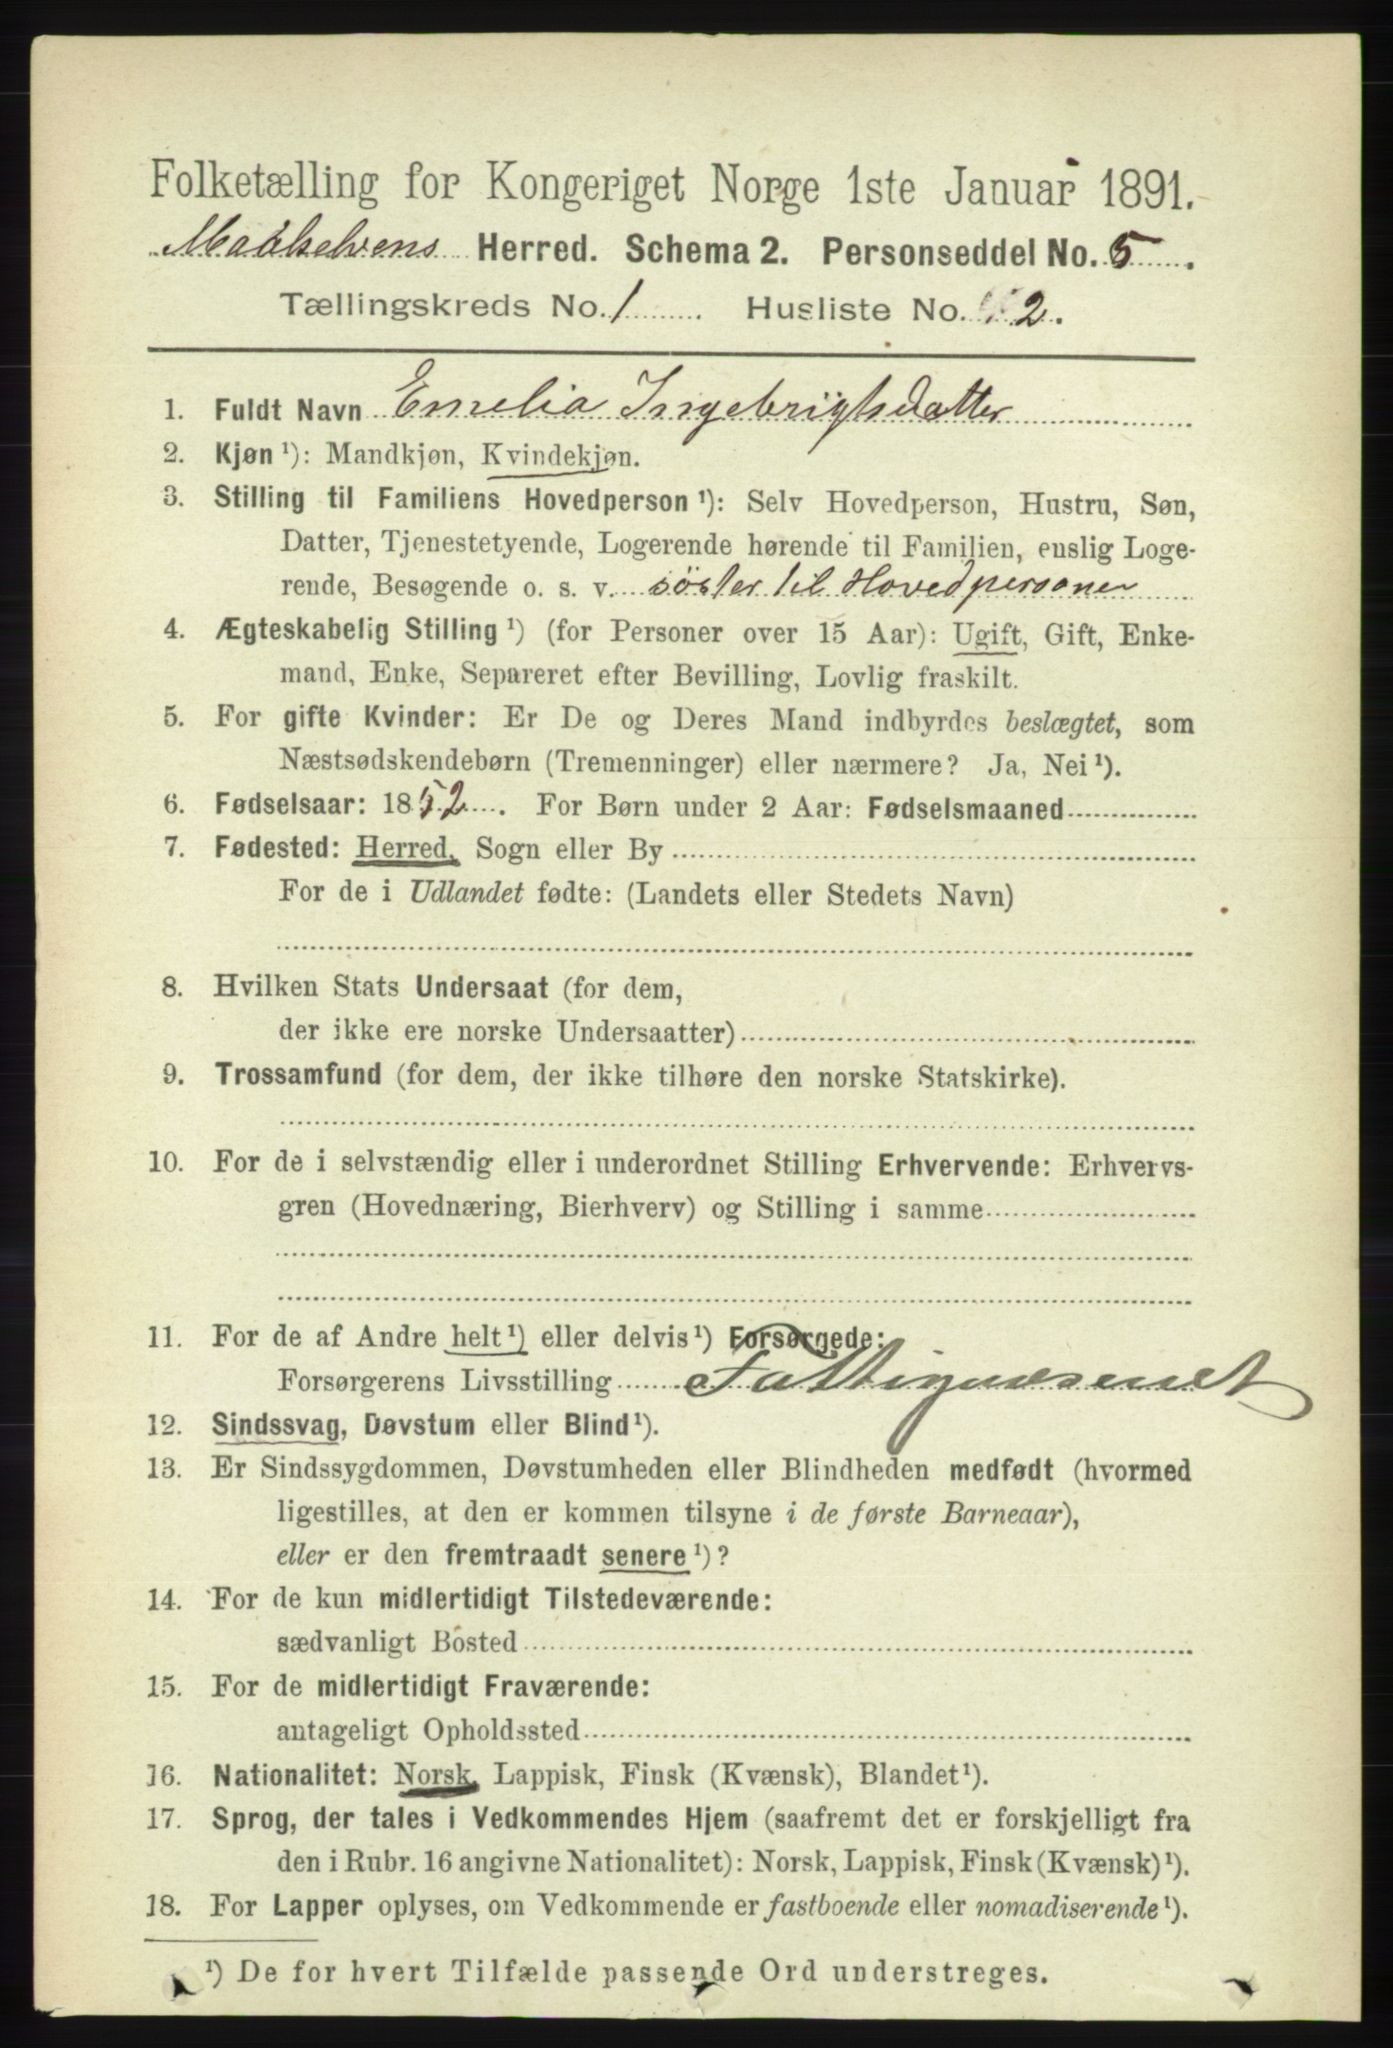 Folketælling for Kongeriget Norge 1ste Januar 1891.
Maalselvens Herred. Schema 2. Personseddel No. 5.
Tællingskreds No. 1. Husliste No. 2.
1. Fuldt Navn Emelia Ingebrigtsdatter
2. Kjøn ¹): Mandkjøn, Kvindekjøn.
3. Stilling til Familiens Hovedperson ¹): Selv Hovedperson, Hustru, Søn,
Datter, Tjenestetyende, Logerende hørende til Familien, enslig Loge-
rende, Besøgende o. s. v. söster til Hovedpersonen
4. Ægteskabelig Stilling ¹) (for Personer over 15 Aar): Ugift, Gift, Enke-
mand, Enke, Separeret efter Bevilling, Lovlig fraskilt.
5. For gifte Kvinder: Er De og Deres Mand indbyrdes beslægtet, som
Næstsødskendebørn (Tremenninger) eller nærmere? Ja, Nei ¹).
6. Fødselsaar: 1852. For Børn under 2 Aar: Fødselsmaaned
7. Fødested: Herred, Sogn eller By
For de i Udlandet fødte: (Landets eller Stedets Navn)
8. Hvilken Stats Undersaat (for dem,
der ikke ere norske Undersaatter)
9. Trossamfund (for dem, der ikke tilhøre den norske Statskirke).
10. For de i selvstændig eller i underordnet Stilling Erhvervende: Erhvervs-
gren (Hovednæring, Bierhverv) og Stilling i samme
11. For de af Andre helt ¹) eller delvis ¹) Forsørgede:
Forsørgerens Livsstilling Fattigvæsenet
12. Sindssvag, Døvstum eller Blind ¹).
13. Er Sindssygdommen, Døvstumheden eller Blindheden medfødt (hvormed
ligestilles, at den er kommen tilsyne i de første Barneaar),
eller er den fremtraadt senere ¹)?
14. For de kun midlertidigt Tilstedeværende:
sædvanligt Bosted
15. For de midlertidigt Fraværende:
antageligt Opholdssted
16. Nationalitet: Norsk, Lappisk, Finsk (Kvænsk), Blandet ¹).
17. Sprog, der tales i Vedkommendes Hjem (saafremt det er forskjelligt fra
den i Rubr. 16 angivne Nationalitet): Norsk, Lappisk, Finsk (Kvænsk) ¹).
18. For Lapper oplyses, om Vedkommende er fastboende eller nomadiserende ¹).
¹) De for hvert Tilfælde passende Ord understreges.